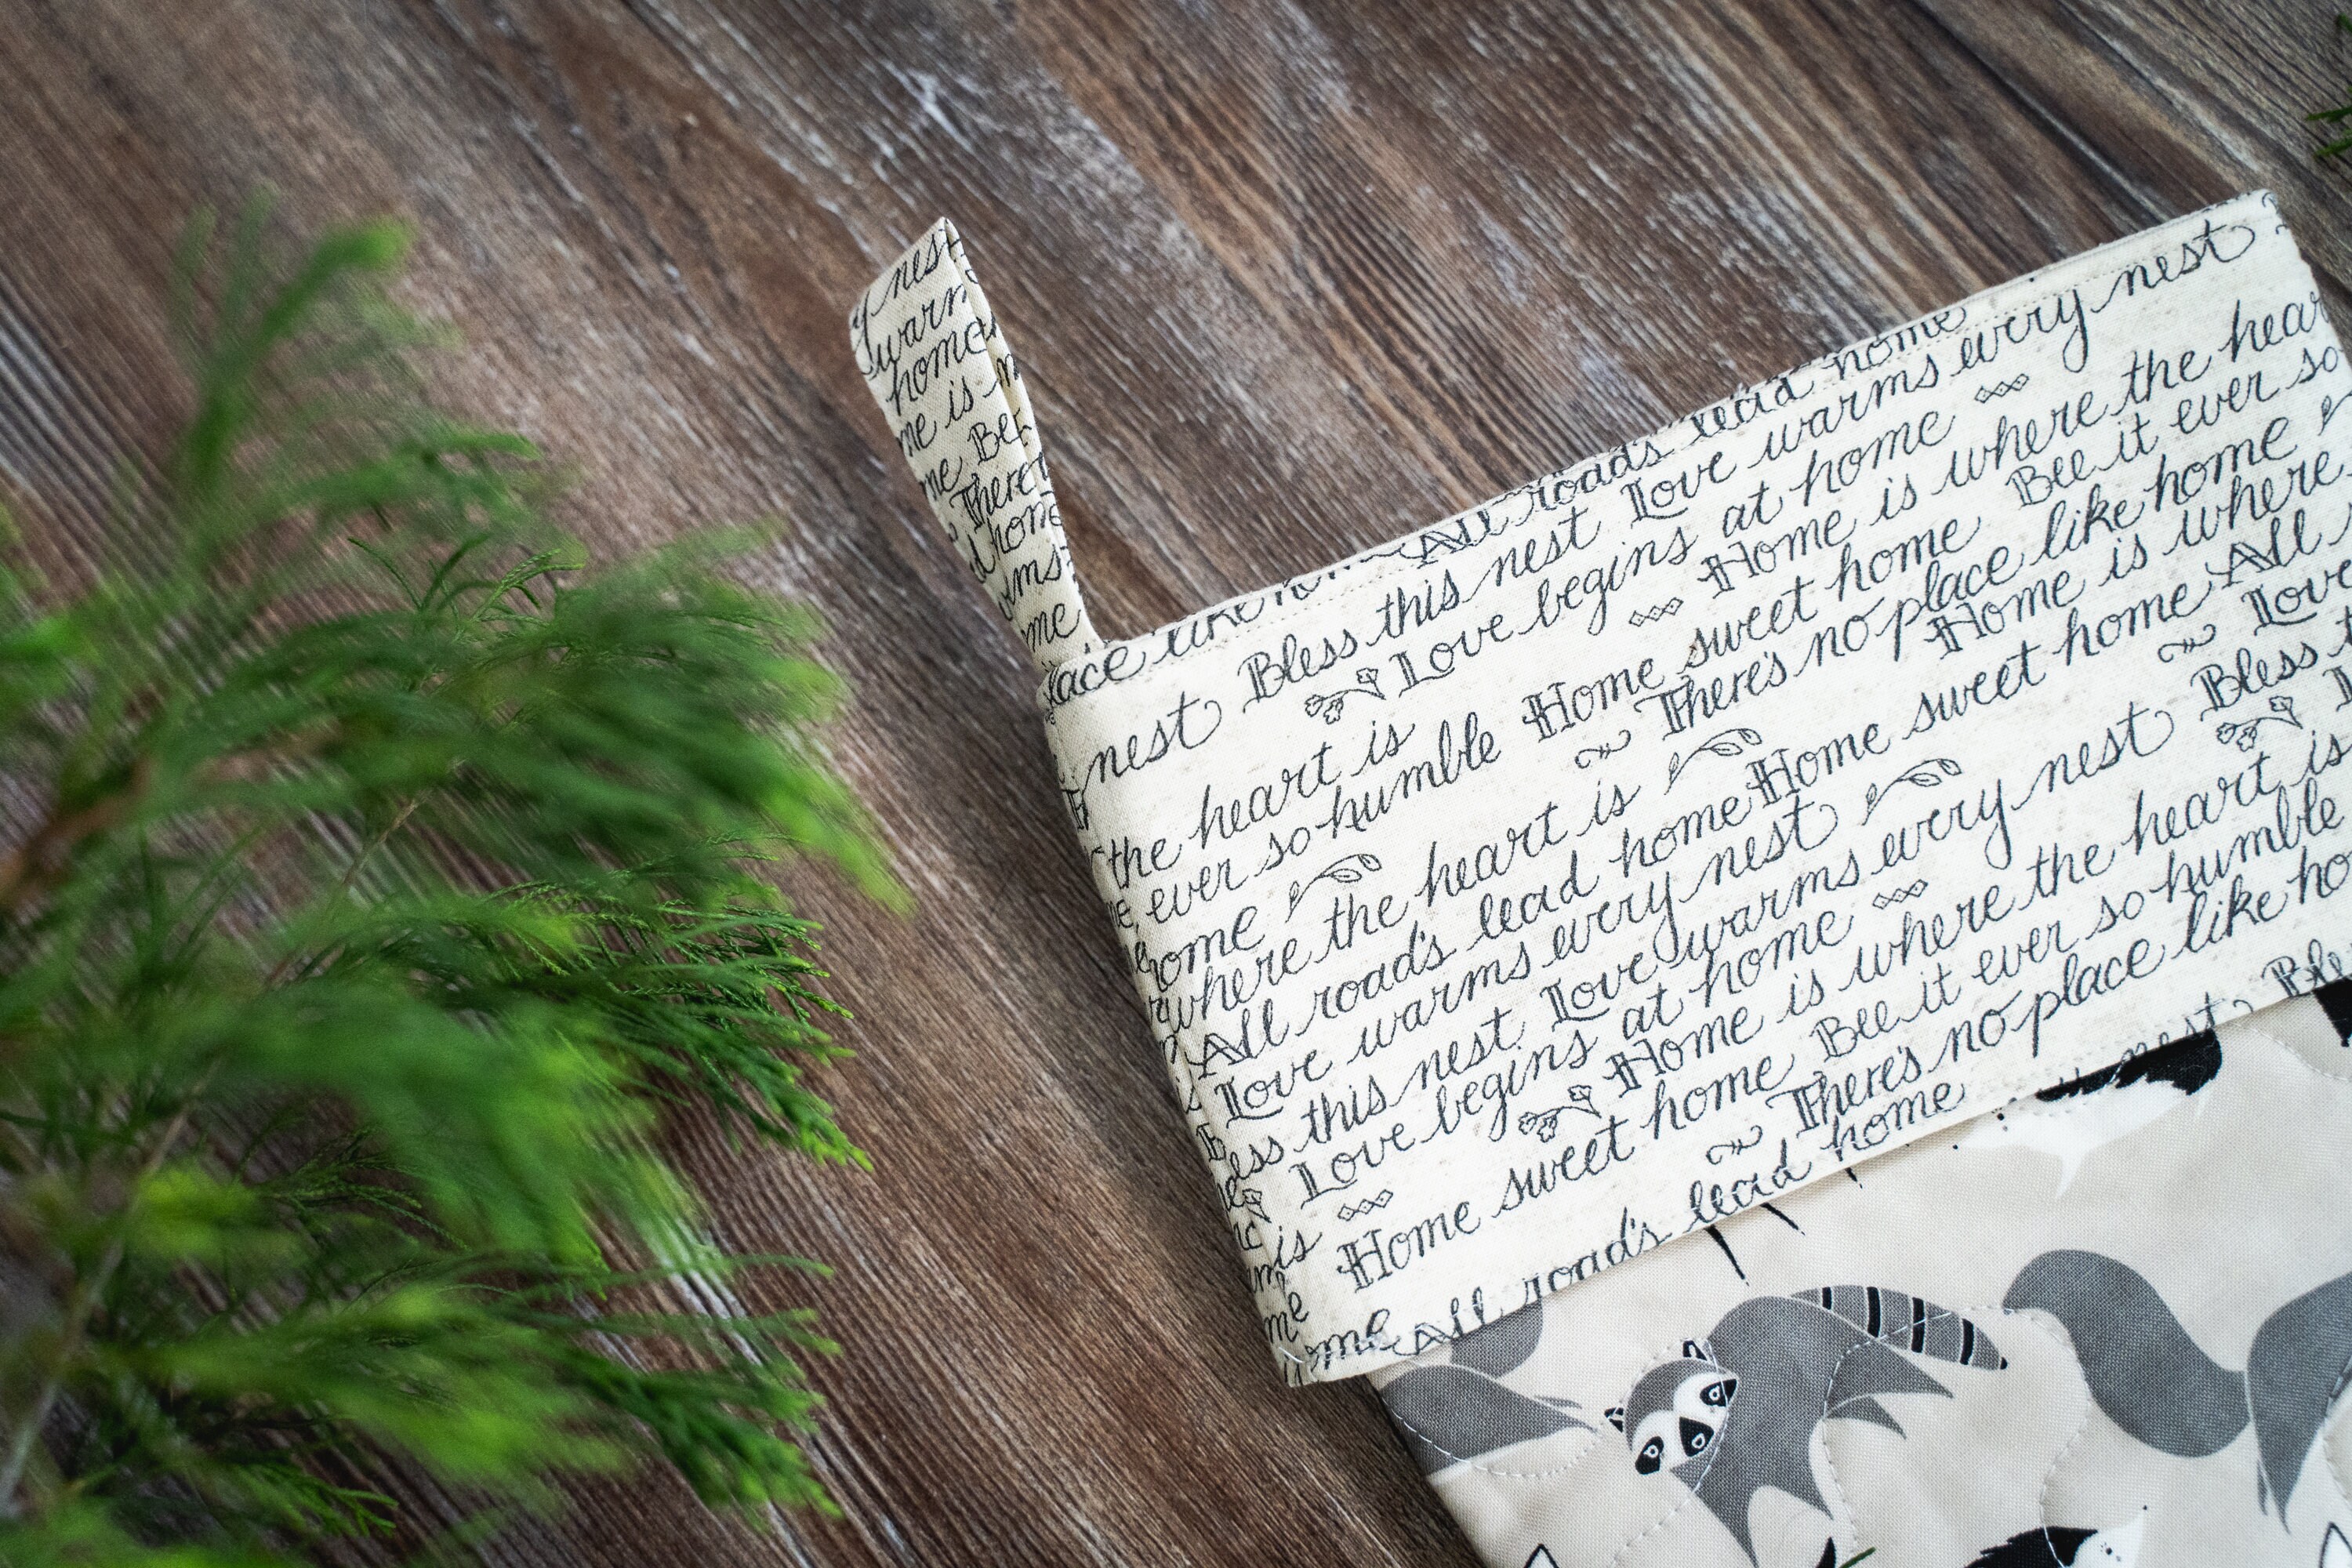 y nest
warm
home
me is
me Bee
There
home
ms
me
place like home All roads lead home
nest Bless this nest Love warms every nest
Love begins at home
the heart is Home is where the hear
ever so humble Home sweet home Bee it ever so
home There's no place like home
where the heart is Home is where
All road's lead home Home sweet home All
Love warms every nest Love
Bless this nest Love warms every nest Bless t
Love begins at home
is Home is where the heart is
Home sweet home Bee it ever so humble
There's no place like ho
ome All road's lead home nest Ble